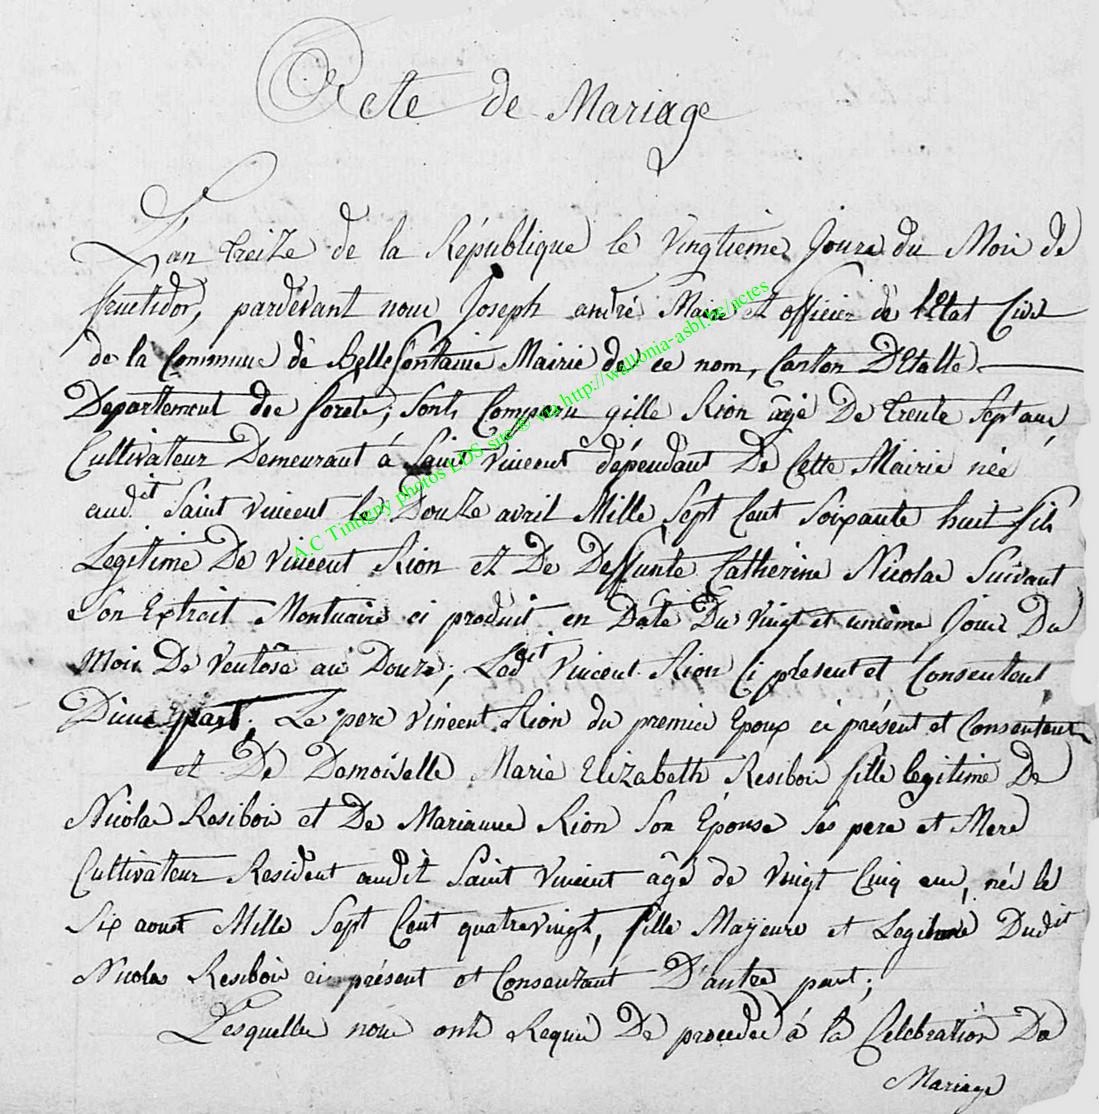 Acte de Mariage
L'an treize de la République le vingtieme Jour du Mois de
fructidor, pardevant nous Joseph andré Maire et officier de l'état Civil
de la Commune de Bellefontaine Mairie de ce nom, Canton D'Etalle
Departement des forets; sont Comparu gille Rion âgé De trente sept ans,
Cultivateur Demeurant á Saint Vincent dépendant De Cette Mairie née
aud.it Saint Vincent le Douze avril Mille Sept Cent Soixante huit fils
Legitime De Vincent Rion et De Deffunte Catherine Nicolas Suivant
Son Extrait Mortuaire ci produit en Date Du Vingt et unieme Jour Du
Mois De Ventose an Douze; Ledit Vincent Rion Ci présent et Consentent
D'une part; Le pere Vincent Rion du premier Epoux ci présent et Consentent
et De Demoiselle Marie Elizabeth Resibois fille legitime De
Nicolas Resibois et De Marianne Rion Son Épouse Ses pere et Mere
Cultivateur Resident audit Saint Vincent âgé de Vingt Cinq ans, née le
Six aoust Mille Sept Cent quatrevingt, fille Majeure et Legitime Dudit
Nicolas Resibois ci présent et Consentant D'autre part;
Lesquelles nous onts Requis De proceder á la Celebration Du
Mariage
A.C Tintigny photos LDS site @ via http://wallonia-asbl.be/actes